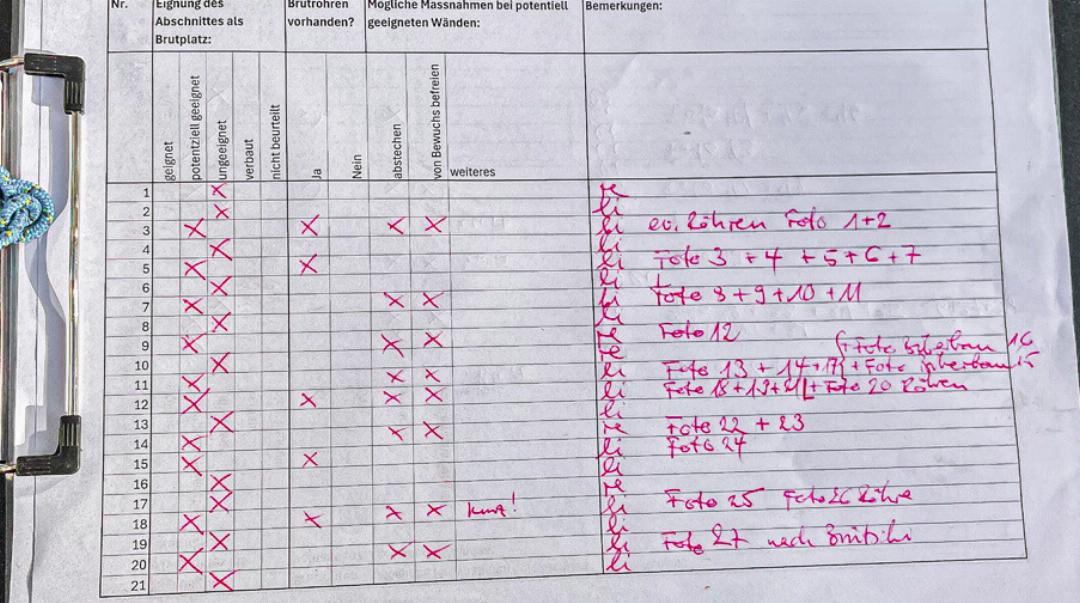 Nr. Eignung des Abschnittes als Brutplatz: Brutröhren vorhanden? Mögliche Massnahmen bei potentiell geeigneten Wänden: Bemerkungen:
geignet potentziell geeignet ungeeignet verbaut nicht beurteilt Ja Nein abstechen von Bewuchs befreien weiteres
1 X re
2 X li
3 X X X X li ev. Röhren Foto 1+2
4 X li
5 X X li Foto 3 + 4 + 5 + 6 + 7
6 X li
7 X X X li Foto 8 + 9 + 10 + 11
8 X li
9 X X X re Foto 12
10 X re
11 X X X li Foto 13 + 14 + 17 + Foto 15 16
12 X X X X li Foto 18 + 19 + 21 + Foto 20 Röhren
13 X li
14 X X X re Foto 22 + 23
15 X X li Foto 24
16 X li
17 X re
18 X X X X kurz! li Foto 25 Foto 26 Röhre
19 X li
20 X X X li Foto 27 nach
21 X li